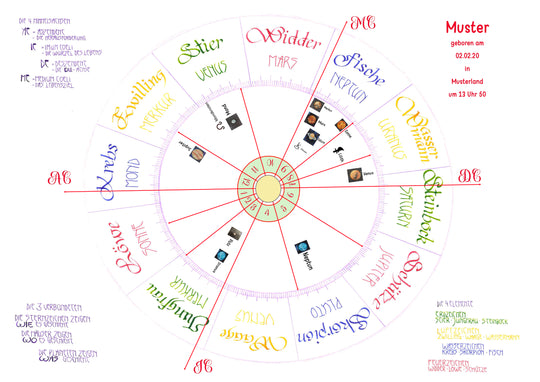 DIE 4 HAUPTACHSEN
AC = ASZENDENT
IC = IMUM COELI
DC = DESZENDENT
DIE DU-ACHSE
MC = MEDIUM COELI
DAS LEBENSZIEL
Muster
geboren am
02.02.20
in
Musterland
um 23 Uhr 50
MC
Widder
MARS
Fische
NEPTUN
Wassermann
URANUS
DC
Steinbock
SATURN
Schütze
JUPITER
Skorpion
PLUTO
Waage
VENUS
IC
Jungfrau
MERKUR
Löwe
SONNE
AC
Krebs
MOND
Zwilling
MERKUR
Stier
VENUS
Mond
Jupiter
Mars
Venus
Neptun
DIE 3 VERBÜNDETEN
DIE STERNZEICHEN ZEIGEN
WIE ES GESCHIEHT
DIE HÄUSER ZEIGEN
WO ES GESCHIEHT
DIE PLANETEN ZEIGEN
WAS GESCHIEHT
DIE 4 ELEMENTE
ERDZEICHEN
STIER-JUNGFRAU-STEINBOCK
LUFTZEICHEN
ZWILLING-WAAGE-WASSERMANN
WASSERZEICHEN
KREBS-SKORPION-FISCH
FEUERZEICHEN
WIDDER-LÖWE-SCHÜTZE